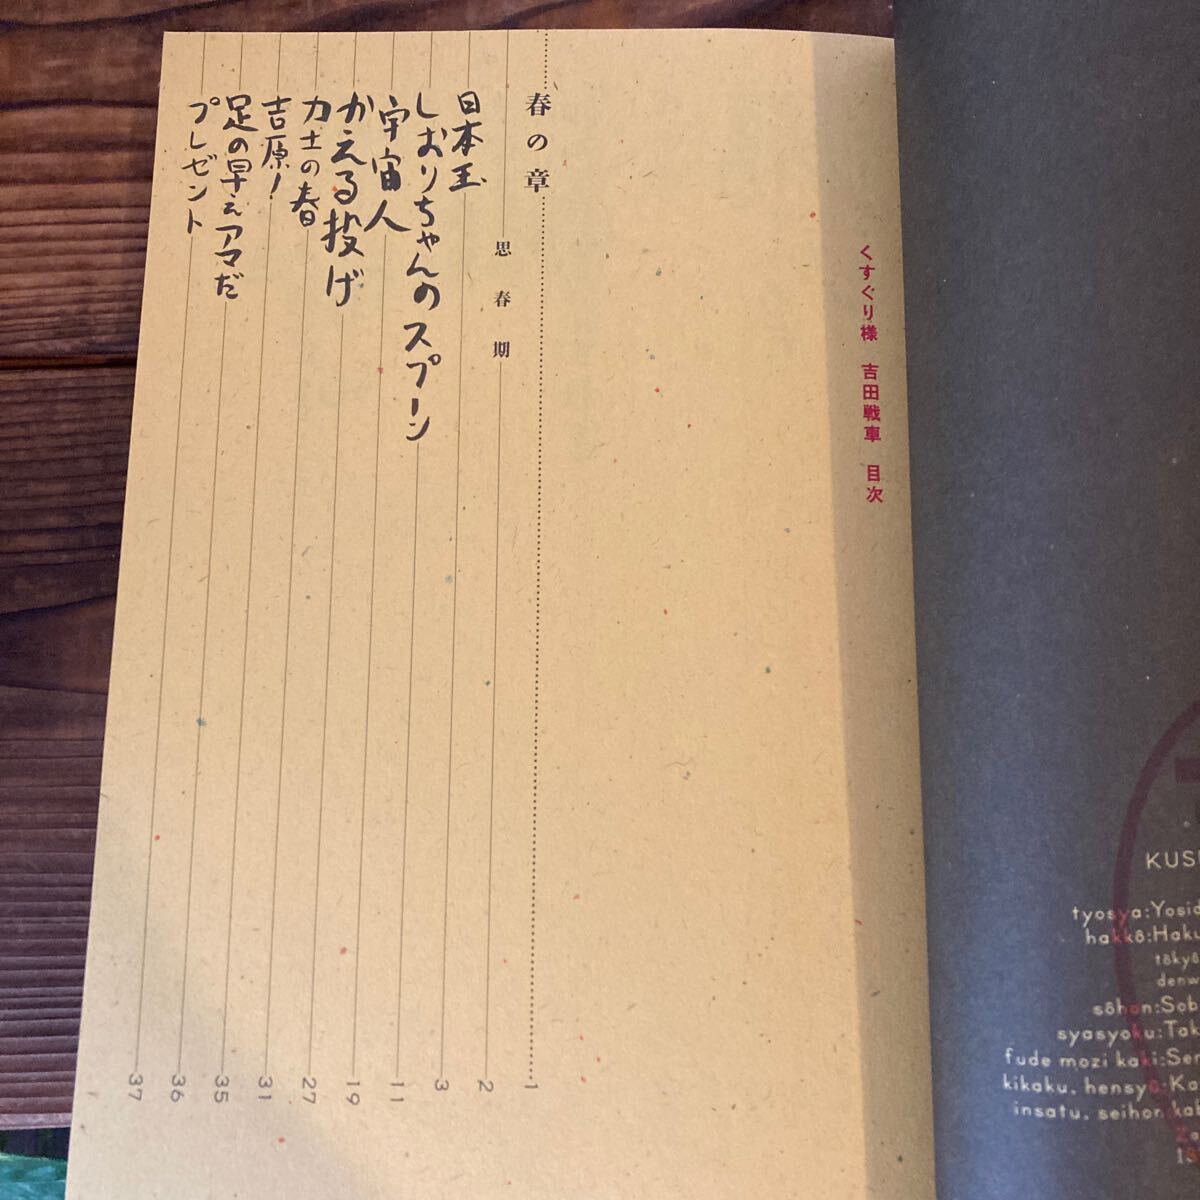 くすぐり様 吉田戦車 目次
春の章 1
思春期 2
日本玉 3
しおりちゃんのスプーン 11
宇宙人 19
かえる投げ 27
力士の春 31
吉原! 35
足の早えアマだ 36
プレゼント 37
KUS
tyosya:Yosid
hakkô:Haku
tôkyô
denw
sôhon:Sob
syasyoku:Tak
fude mozi kaki:Sen
kikaku, hensyû:Ka
insatu, seihon